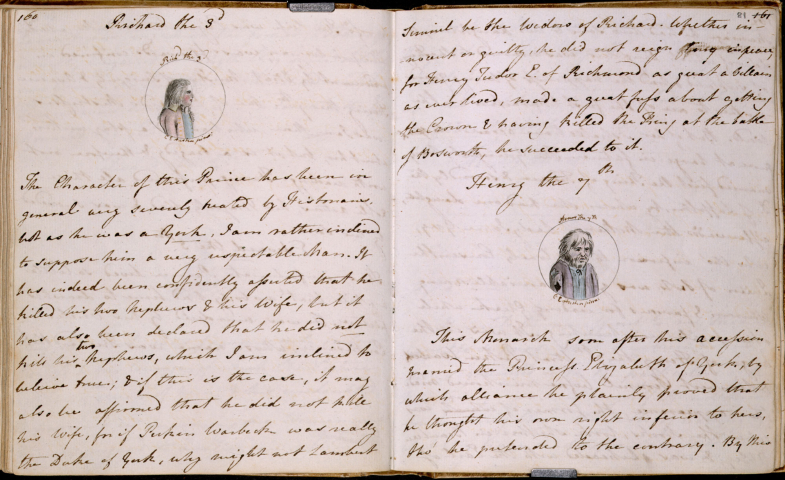 160
Richard the 3d
Richd the 3d
C E Austen pinxit
The Character of this Prince has been in
general very severely treated by Historians,
but as he was a York, I am rather inclined
to suppose him a very respectable Man. It
has indeed been confidently asserted that he
killed his two Nephews & his Wife, but it
has also been declared that he did not
kill his two Nephews, which I am inclined to
beleive true; & if this is the case, it may
also be affirmed that he did not kill
his Wife, for if Perkin Warbeck was really
the Duke of York, why might not Lambert
161
Simnel be the Widow of Richard. Whether in-
nocent or guilty, he did not reign long in peace,
for Henry Tudor E. of Richmond as great a Villain
as ever lived, made a great fuss about getting
the Crown & having killed the King at the battle
of Bosworth, he succeeded to it.
Henry the 7th
Henry the 7th
C E Austen pinxit
This Monarch soon after his accession
married the Princess Elizabeth of York, by
which alliance he plainly proved that
he thought his own right inferior to hers,
tho' he pretended to the contrary. By this